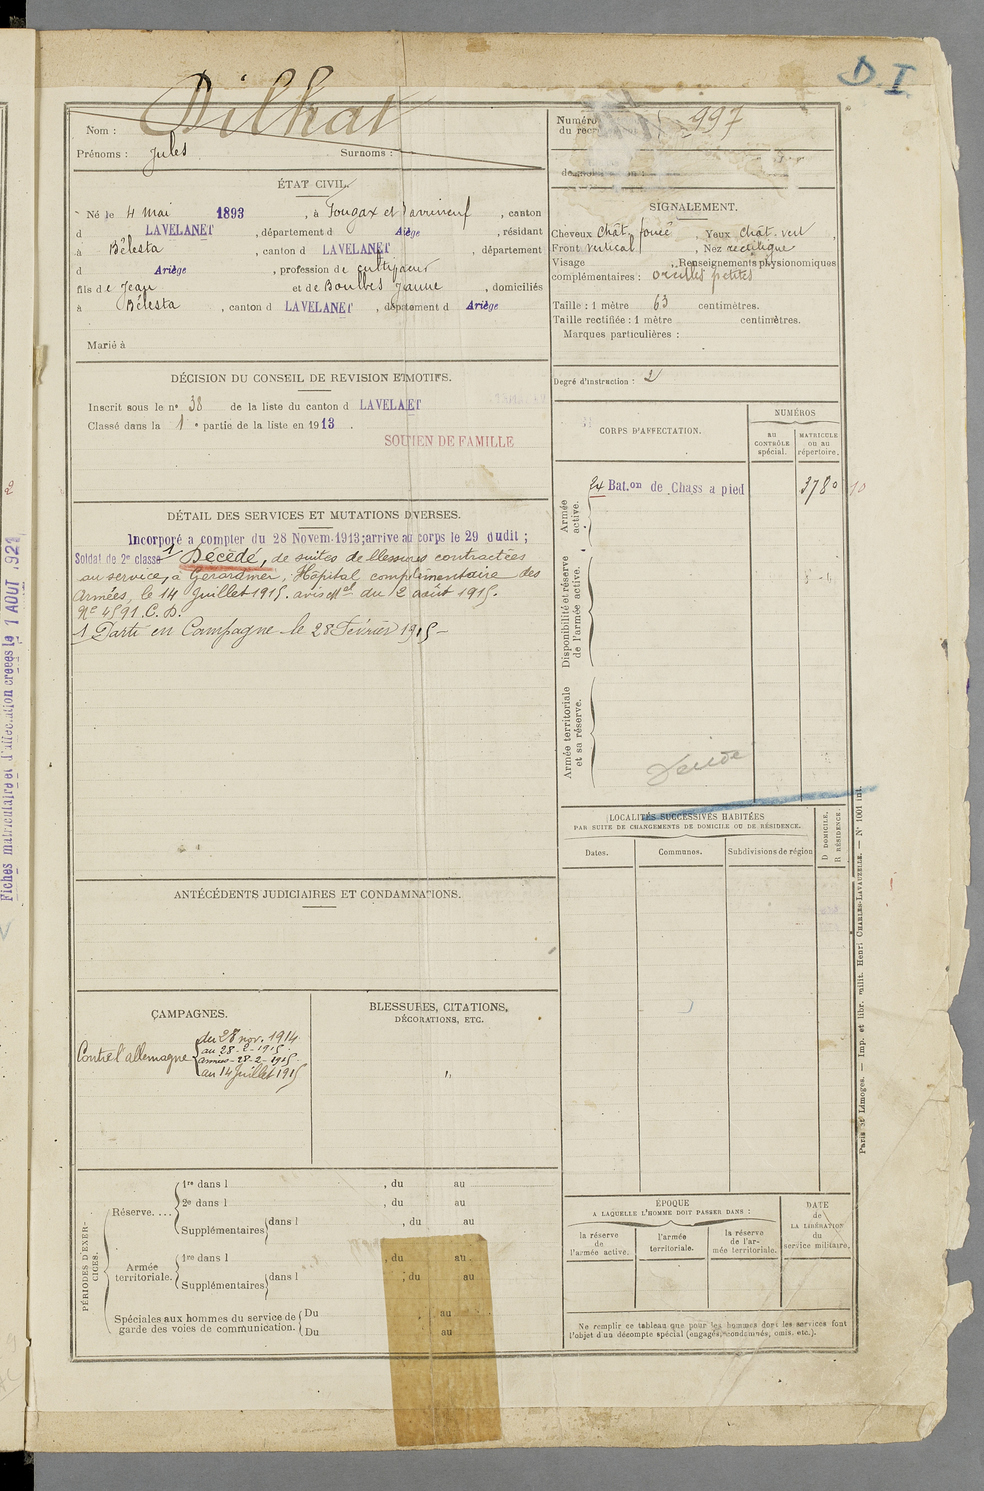 D.I.
Nom : Dilhat
Prénoms : Jules Surnoms :
Numéro
du recr
997
ÉTAT CIVIL.
Né le 4 mai 1893, à Fougax et Barrineuf, canton
d LAVELANET, département d Ariège, résidant
à Bélesta, canton d LAVELANET, département
d Ariège, profession de cultivateur
fils de Jean et de Boulbes Jeanne, domiciliés
à Bélesta, canton d LAVELANET, département d Ariège
Marié à
SIGNALEMENT.
Cheveux chât. foncé Yeux chât. vert,
Front vertical, Nez rectiligne
Visage, Renseignements physionomiques
complémentaires : oreilles petites
Taille : 1 mètre 63 centimètres.
Taille rectifiée : 1 mètre centimètres.
Marques particulières :
Degré d'instruction : 2
DÉCISION DU CONSEIL DE REVISION ET MOTIFS.
Inscrit sous le n° 38 de la liste du canton d LAVELANET
Classé dans la 1e partie de la liste en 1913.
SOUTIEN DE FAMILLE
DÉTAIL DES SERVICES ET MUTATIONS DIVERSES.
Incorporé a compter du 28 Novem. 1913; arrivé au corps le 29 dudit ;
Soldat de 2e classe 1 Décédé, de suites de blessures contractées
au service, à Gérardmer, Hôpital complémentaire des
Armées, le 14 Juillet 1915. avis Mel du 12 août 1915.
No 4591. C. D.
1 Parti en Campagne le 28 Février 1915 -
CORPS D'AFFECTATION.
NUMÉROS
au
CONTRÔLE
spécial.
MATRICULE
ou au
répertoire.
Armée
active.
24 Bat.on de Chass a pied 3780 10
Disponibilité et réserve
de l'armée active.
Armée territoriale
et sa réserve.
LOCALITÉS SUCCESSIVES HABITÉES
PAR SUITE DE CHANGEMENTS DE DOMICILE OU DE RÉSIDENCE.
Dates. Communes. Subdivisions de région
D DOMICILE,
R RÉSIDENCE.
ANTÉCÉDENTS JUDICIAIRES ET CONDAMNATIONS.
CAMPAGNES.
Contre l'allemagne
du 28 nov. 1914
au 28-2-1915.
armées - 28-2-1915.
au 14 Juillet 1915
BLESSURES, CITATIONS,
DÉCORATIONS, ETC.
PÉRIODES D'EXER-
CICES.
Réserve....
1re dans l, du au
2e dans l, du au
Supplémentaires dans l, du au
Armée
territoriale.
1re dans l, du au
Supplémentaires dans l ; du au
Spéciales aux hommes du service de
garde des voies de communication.
Du au
Du au
ÉPOQUE
A LAQUELLE L'HOMME DOIT PASSER DANS :
la réserve
de
l'armée active.
l'armée
territoriale.
la réserve
de l'ar-
mée territoriale.
DATE
de
LA LIBÉRATION
du
service militaire.
Ne remplir ce tableau que pour les hommes dont les services font
l'objet d'un décompte spécial (engagés, condamnés, omis, etc.).
Paris et Limoges. — Imp. et libr. milit. Henri CHARLES-LAVAUZELLE. — N° 1001 int.
Fiches matriculaire et d'affectation créées le 1 AOUT 1921